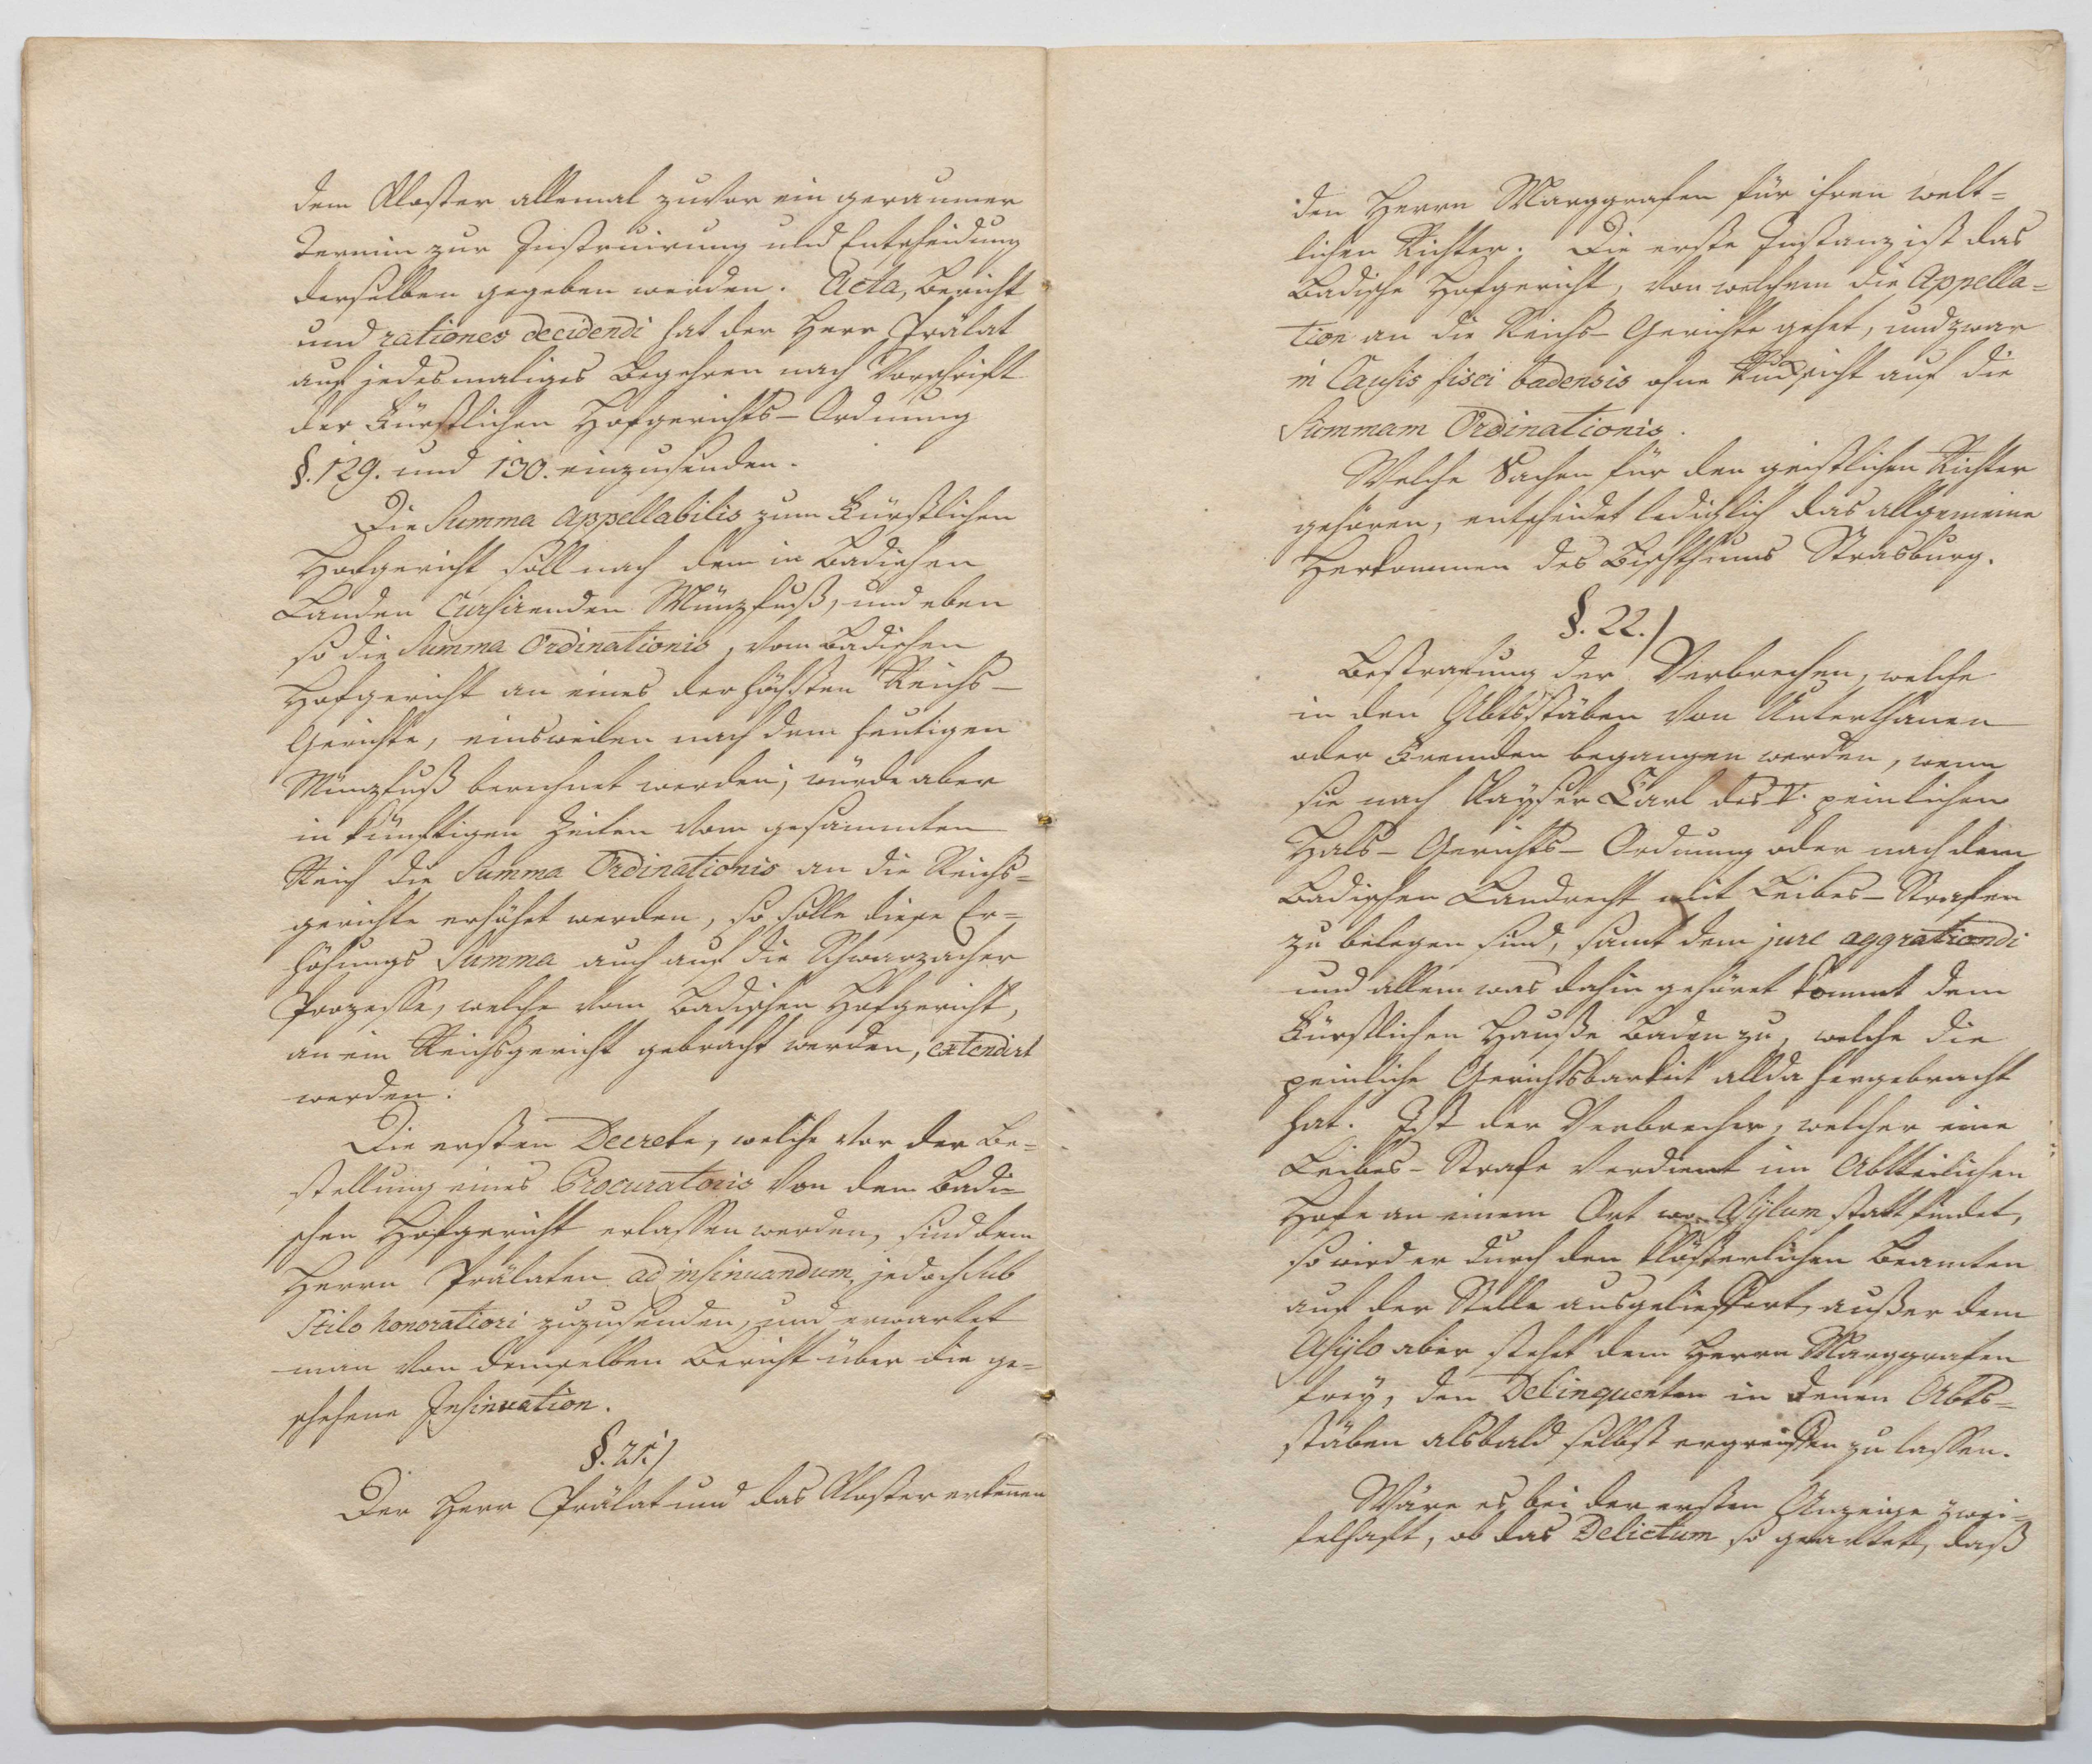 dem Kloster allemal zuvor ein geraumer
Termin zur Instruirung und Entscheidung
derselben gegeben werden. Acta, Bericht
und rationes decidendi hat der Herr Prälat
auf jedesmaliges Begehren nach Vorschrift
der Fürstlichen Hofgerichts-Ordnung
§. 129. und 130. einzusenden.
Die Summa appellabilis zum Fürstlichen
Hofgericht soll nach dem in Badischen
Landen Cursirenden Münzfuß, und eben
so die Summa Ordinationis, vom Badischen
Hofgericht an eines der höchsten Reichs-
Gerichte, einsweilen nach dem heutigen
Münzfuß berechnet werden; würde aber
in künftigen Zeiten vom gesammten
Reich die Summa Ordinationis an die Reichs=
gerichte erhöhet werden, so solle diese Er=
höhungs Summa auch auf die Schwarzacher
Prozesse, welche vom Badischen Hofgericht,
an ein Reichsgericht gebracht werden, extendirt
werden.
Die ersten Decrete, welche vor der Be=
stellung eines Procuratoris von dem Badi=
schen Hofgericht erlassen werden, sind dem
Herrn Prälaten ad insinuandum, jedoch sub
Stilo honoratiori zuzusenden, und erwartet
man von demselben Bericht über die ge=
schehene Insinuation.
§. 21./
Der Herr Prälat und das Kloster erkennen
den Herrn Marggrafen für ihren welt=
lichen Richter. Die erste Instanz ist das
Badische Hofgericht, von welchem die Appella=
tion an die Reichs-Gerichte gehet, und zwar
in Causis fisci badensis ohne Rücksicht auf die
Summam Ordinationis.
Welche Sachen für den geistlichen Richter
gehören, entscheidet lediglich das allgemeine
Herkommen des Bischthums Strasburg.
§. 22./
Bestrafung der Verbrechen, welche
in den Abtsstäben von Unterthanen
oder Fremden begangen werden, wenn
sie nach Kayser Carl des V. peinlichen
Hals-Gerichts-Ordnung oder nach dem
Badischen Landrecht mit Leibes-Strafen
zu belegen sind, samt dem jure aggratiandi
und allem was dahin gehöret kommt dem
Fürstlichen Hauße Baden zu, welche die
peinliche Gerichtsbarkeit allda hergebracht
hat. Ist der Verbrecher, welcher eine
Leibes-Strafe verdient im Abtteilichen
Hofe an einem Ort wo Asylum statt findet,
so wird er durch den klösterlichen Beamten
auf der Stelle ausgelieffert, außer dem
Asylo aber stehet dem Herrn Marggrafen
frey, den Delinquenten in denen Abts=
stäben alsbald selbst ergreiffen zu lassen.
Wäre es bei der ersten Anzeige zwei=
felhaft, ob das Delictum so geartet, daß